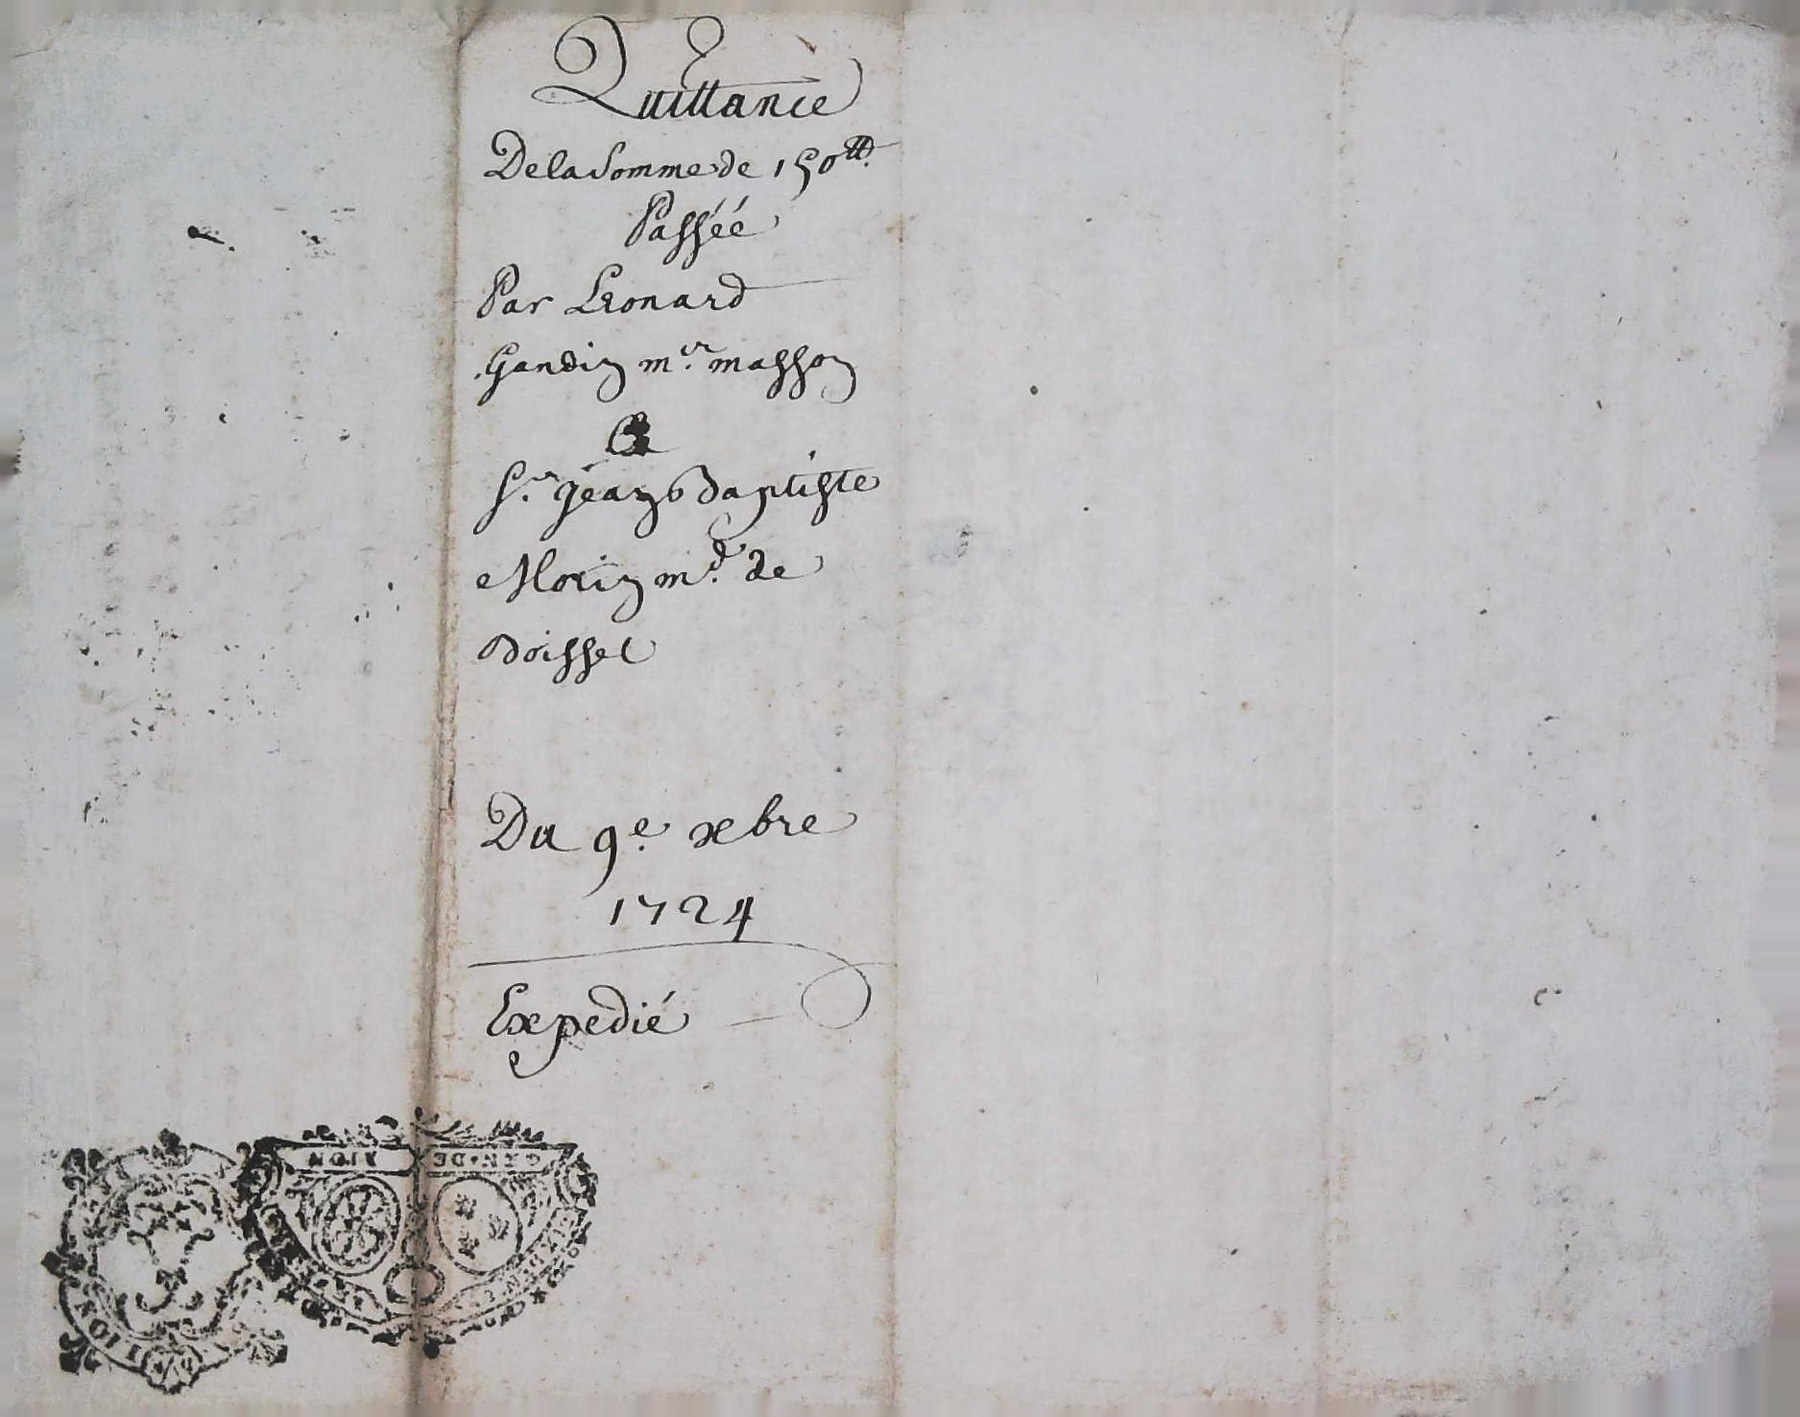 Quittance
De la Somme de 150tt.
Passéé
Par Leonard
Gandin mer. masson
Sr. jean baptiste
Morin md. de
boisset
Du 9e. xbre
1724
Expedié
GEN. DE RION